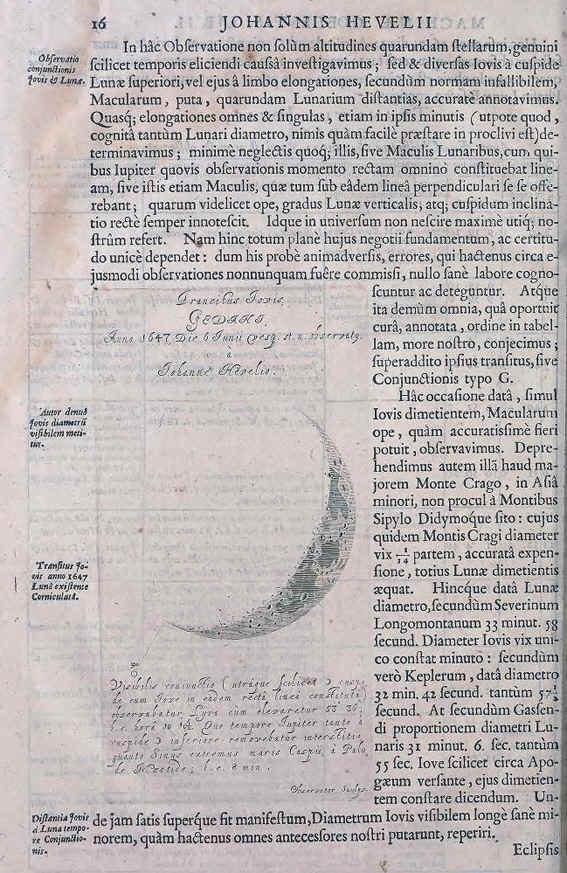 16
JOHANNIS HEVELII
Observatio
conjunctionis
Jovis & Lunæ.
In hâc Observatione non solùm altitudines quarundam stellarum, genuini
scilicet temporis eliciendi caussâ investigavimus; sed & diversas Iovis à cuspide
Lunæ superiori, vel ejus à limbo elongationes, secundùm normam infallibilem,
Macularum, puta, quarundam Lunarium distantias, accuratè annotavimus.
Quasq; elongationes omnes & singulas, etiam in ipsis minutis (utpote quod,
cognitâ tantùm Lunari diametro, nimis quàm facilè præstare in proclivi est) de-
terminavimus; minimè neglectis quoq; illis, sive Maculis Lunaribus, cum qui-
bus Iupiter quovis observationis momento rectam omninò constituebat line-
am, sive istis etiam Maculis, quæ tum sub eâdem lineâ perpendiculari se se offe-
rebant; quarum videlicet ope, gradus Lunæ verticalis, atq; cuspidum inclina-
tio rectè semper innotescit. Idque in universum non nescire maximè utiq; no-
strûm refert. Nam hinc totum planè hujus negotii fundamentum, ac certitu-
do unicè dependet: dum his probè animadversis, errores, qui hactenus circa e-
jusmodi observationes nonnunquam fuêre commissi, nullo sanè labore cogno-
scuntur ac deteguntur. Atque
ita demùm omnia, quâ oportuit
curâ, annotata, ordine in tabel-
lam, more nostro, conjecimus;
superaddito ipsius transitus, sive
Conjunctionis typo G.
Hâc occasione datâ, simul
Iovis dimetientem, Macularum
ope, quàm accuratissimè fieri
potuit, observavimus. Depre-
hendimus autem illã haud ma-
jorem Monte Crago, in Asiâ
minori, non procul à Montibus
Sipylo Didymoque sito: cujus
quidem Montis Cragi diameter
vix 1/34 partem, accuratâ expen-
sione, totius Lunæ dimetientis
æquat. Hincque datâ Lunæ
diametro, secundùm Severinum
Longomontanum 33 minut. 58
secund. Diameter Iovis vix uni-
co constat minuto: secundùm
verò Keplerum, datâ diametro
32 min. 42 secund. tantùm 57½
secund. At secundùm Gassen-
di proportionem diametri Lu-
naris 31 minut. 6. sec. tantùm
55 sec. Iove scilicet circa Apo-
gæum versante, ejus dimetien-
tem constare dicendum. Un-
de jam satis superque sit manifestum, Diametrum Iovis visibilem longè sanè mi-
norem, quàm hactenus omnes antecessores nostri putarunt, reperiri.
Eclipsis
Autor denuò
Jovis diametrũ
visibilem meti-
tur.
Transitus Jo-
vis anno 1647
Lunâ existente
Corniculatâ.
Distantia Jovis
à Luna tempo-
re Conjunctio-
nis.
Transitus Iovis,
GEDANI,
Anno 1647 Die 6 Iunii vesp. st. n. observatg.
à
Johanne Hevelio.
Visibilis coniunctio (utraque scilicet ☽ cuspi-
de cum Iove in eadem recta linea constitutis)
observabatur Lyra cum elevaretur 53° 36';
Quo tempore Iupiter tanto à
cuspide ☽ inferiore removebatur interstitio,
quanto Sinus extremus maris Caspii, à Palu-
de Mæotide; i.e. 8 min.
Observator sculps.